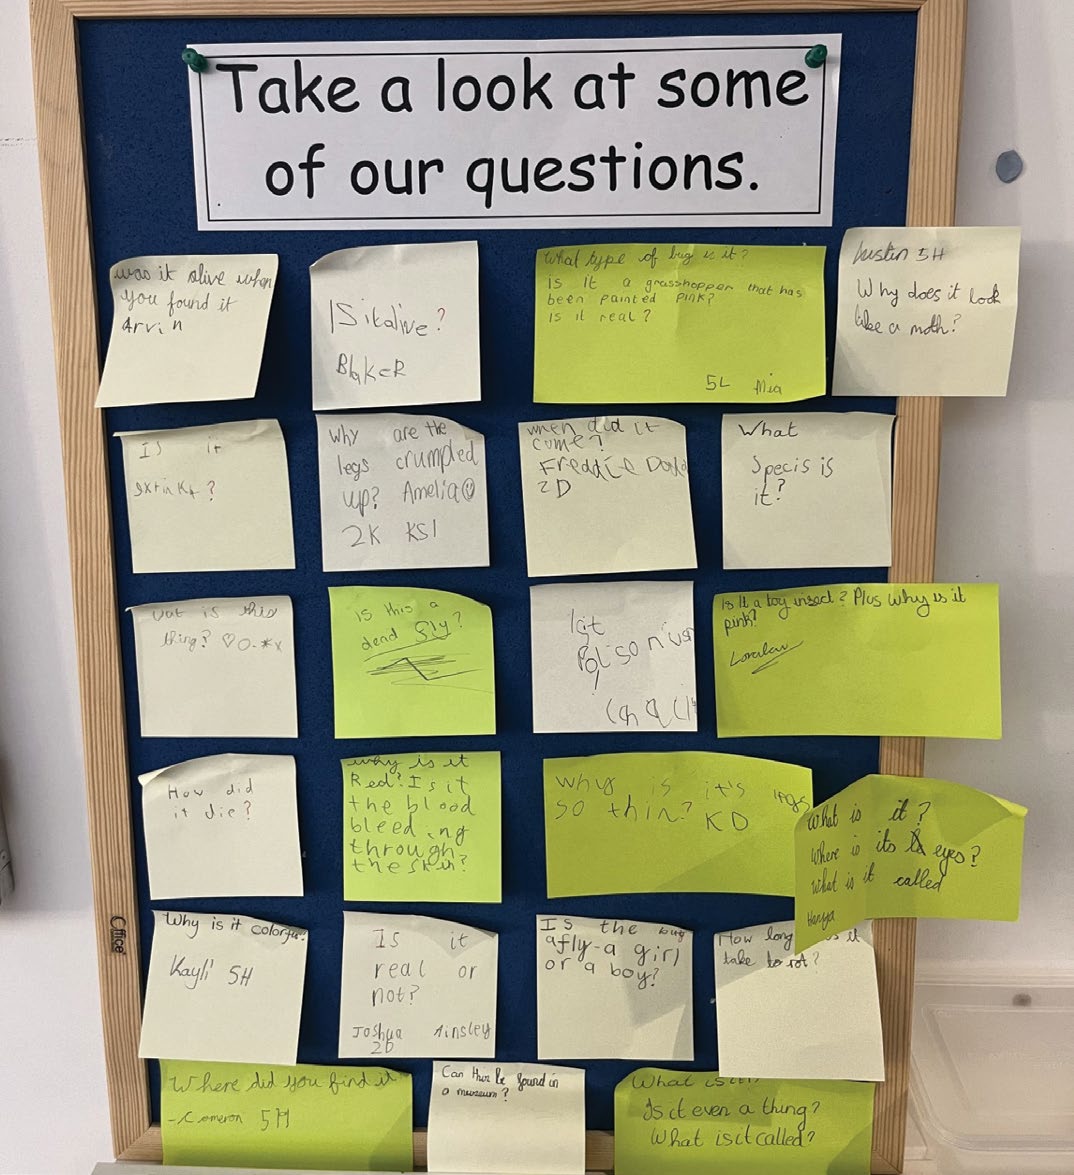 Take a look at some
of our questions.
was it alive when
you found it
Arvin
ISitalive?
BlaKeR
What type of bug is it?
is it a grasshopper that has
been painted pink?
Is it real?
5L Mia
Justin 5H
Why does it look
like a moth?
Is it
extinkt?
why are the
legs crumpled
up? Amelia☺
2K KS1
when did it
come?
Freddie
2D
What
Specis is
it?
wat is this
thing? ♡O.*x
is this a
dead fly?
Is it a toy insect? Plus why is it
pink?
How did
it die?
why is it
Red? Is it
the blood
bleeding
through
the skin?
why is it's
so thin? KD
What is it?
where is its eyes?
what is it called
Hanya
Why is it colorful?
Kayli 5H
Is it
real or
not?
Joshua Ainsley
2D
Is the bug
afly-a girl
or a boy?
How long it
take to rot?
Where did you find it
-Cameron 5H
Can this be found in
a museum?
What is it?
Is it even a thing?
What is it called?
Office